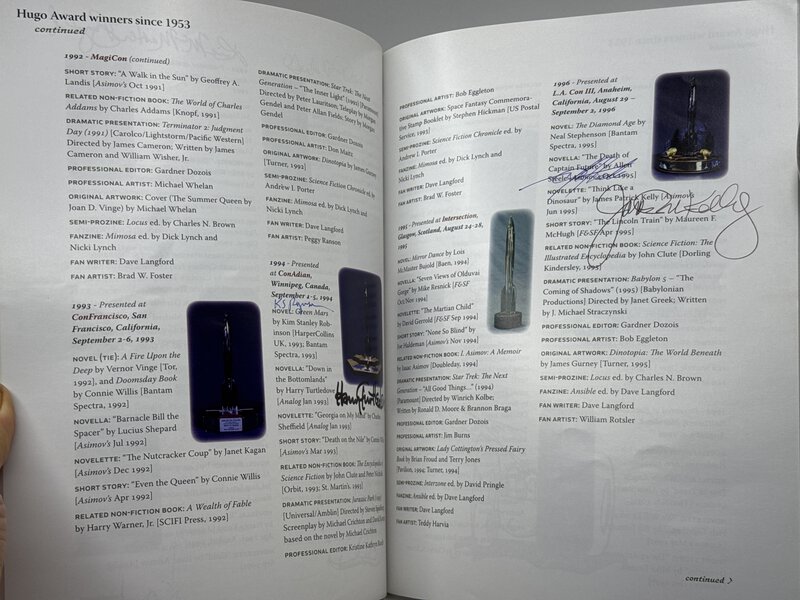 Hugo Award winners since 1953
continued
1992 - MagiCon (continued)
SHORT STORY: "A Walk in the Sun" by Geoffrey A.
Landis [Asimov's Oct 1991]
RELATED NON-FICTION BOOK: The World of Charles
Addams by Charles Addams [Knopf, 1991]
DRAMATIC PRESENTATION: Terminator 2: Judgment
Day (1991) [Carolco/Lightstorm/Pacific Western]
Directed by James Cameron; Written by James
Cameron and William Wisher, Jr.
PROFESSIONAL EDITOR: Gardner Dozois
PROFESSIONAL ARTIST: Michael Whelan
ORIGINAL ARTWORK: Cover (The Summer Queen by
Joan D. Vinge) by Michael Whelan
SEMI-PROZINE: Locus ed. by Charles N. Brown
FANZINE: Mimosa ed. by Dick Lynch and
Nicki Lynch
FAN WRITER: Dave Langford
FAN ARTIST: Brad W. Foster
1993 - Presented at
ConFrancisco, San
Francisco, California,
September 2-6, 1993
NOVEL (TIE): A Fire Upon the
Deep by Vernor Vinge [Tor,
1992], and Doomsday Book
by Connie Willis [Bantam
Spectra, 1992]
NOVELLA: "Barnacle Bill the
Spacer" by Lucius Shepard
[Asimov's Jul 1992]
NOVELETTE: "The Nutcracker Coup" by Janet Kagan
[Asimov's Dec 1992]
SHORT STORY: "Even the Queen" by Connie Willis
[Asimov's Apr 1992]
RELATED NON-FICTION BOOK: A Wealth of Fable
by Harry Warner, Jr. [SCIFI Press, 1992]
DRAMATIC PRESENTATION: Star Trek: The Next
Generation – "The Inner Light" (1992) [Paramount]
Directed by Peter Lauritson; Teleplay by Morgan
Gendel and Peter Allan Fields; Story by Morgan
Gendel
PROFESSIONAL EDITOR: Gardner Dozois
PROFESSIONAL ARTIST: Don Maitz
ORIGINAL ARTWORK: Dinotopia by James Gurney
[Turner, 1992]
SEMI-PROZINE: Science Fiction Chronicle ed. by
Andrew I. Porter
FANZINE: Mimosa ed. by Dick Lynch and
Nicki Lynch
FAN WRITER: Dave Langford
FAN ARTIST: Peggy Ranson
1994 - Presented
at ConAdian,
Winnipeg, Canada,
September 1-5, 1994
NOVEL: Green Mars by
Kim Stanley Rob-
inson [HarperCollins
UK, 1993; Bantam
Spectra, 1993]
NOVELLA: "Down in
the Bottomlands"
by Harry Turtledove
[Analog Jan 1993]
NOVELETTE: "Georgia on My Mind" by Charles
Sheffield [Analog Jan 1993]
SHORT STORY: "Death on the Nile" by Connie Willis
[Asimov's Mar 1993]
RELATED NON-FICTION BOOK: The Encyclopedia of
Science Fiction by John Clute and Peter Nicholls
[Orbit, 1993; St. Martin's, 1993]
DRAMATIC PRESENTATION: Jurassic Park (1993)
[Universal/Amblin] Directed by Steven Spielberg;
Screenplay by Michael Crichton and David Koepp;
based on the novel by Michael Crichton
PROFESSIONAL EDITOR: Kristine Kathryn Rusch
PROFESSIONAL ARTIST: Bob Eggleton
ORIGINAL ARTWORK: Space Fantasy Commemora-
tive Stamp Booklet by Stephen Hickman [US Postal
Service, 1993]
SEMI-PROZINE: Science Fiction Chronicle ed. by
Andrew I. Porter
FANZINE: Mimosa ed. by Dick Lynch and
Nicki Lynch
FAN WRITER: Dave Langford
FAN ARTIST: Brad W. Foster
1995 - Presented at Intersection,
Glasgow, Scotland, August 24-28,
1995
NOVEL: Mirror Dance by Lois
McMaster Bujold [Baen, 1994]
NOVELLA: "Seven Views of Olduvai
Gorge" by Mike Resnick [F&SF
Oct/Nov 1994]
NOVELETTE: "The Martian Child"
by David Gerrold [F&SF Sep 1994]
SHORT STORY: "None So Blind" by
Joe Haldeman [Asimov's Nov 1994]
RELATED NON-FICTION BOOK: I. Asimov: A Memoir
by Isaac Asimov [Doubleday, 1994]
DRAMATIC PRESENTATION: Star Trek: The Next
Generation – "All Good Things..." (1994)
[Paramount] Directed by Winrich Kolbe;
Written by Ronald D. Moore & Brannon Braga
PROFESSIONAL EDITOR: Gardner Dozois
PROFESSIONAL ARTIST: Jim Burns
ORIGINAL ARTWORK: Lady Cottington's Pressed Fairy
Book by Brian Froud and Terry Jones
[Pavilion, 1994; Turner, 1994]
SEMI-PROZINE: Interzone ed. by David Pringle
FANZINE: Ansible ed. by Dave Langford
FAN WRITER: Dave Langford
FAN ARTIST: Teddy Harvia
1996 - Presented at
L.A. Con III, Anaheim,
California, August 29 –
September 2, 1996
NOVEL: The Diamond Age by
Neal Stephenson [Bantam
Spectra, 1995]
NOVELLA: "The Death of
Captain Future" by Allen
Steele [Asimov's Oct 1995]
NOVELETTE: "Think Like a
Dinosaur" by James Patrick Kelly [Asimov's
Jun 1995]
SHORT STORY: "The Lincoln Train" by Maureen F.
McHugh [F&SF Apr 1995]
RELATED NON-FICTION BOOK: Science Fiction: The
Illustrated Encyclopedia by John Clute [Dorling
Kindersley, 1995]
DRAMATIC PRESENTATION: Babylon 5 – "The
Coming of Shadows" (1995) [Babylonian
Productions] Directed by Janet Greek; Written
by J. Michael Straczynski
PROFESSIONAL EDITOR: Gardner Dozois
PROFESSIONAL ARTIST: Bob Eggleton
ORIGINAL ARTWORK: Dinotopia: The World Beneath
by James Gurney [Turner, 1995]
SEMI-PROZINE: Locus ed. by Charles N. Brown
FANZINE: Ansible ed. by Dave Langford
FAN WRITER: Dave Langford
FAN ARTIST: William Rotsler
continued